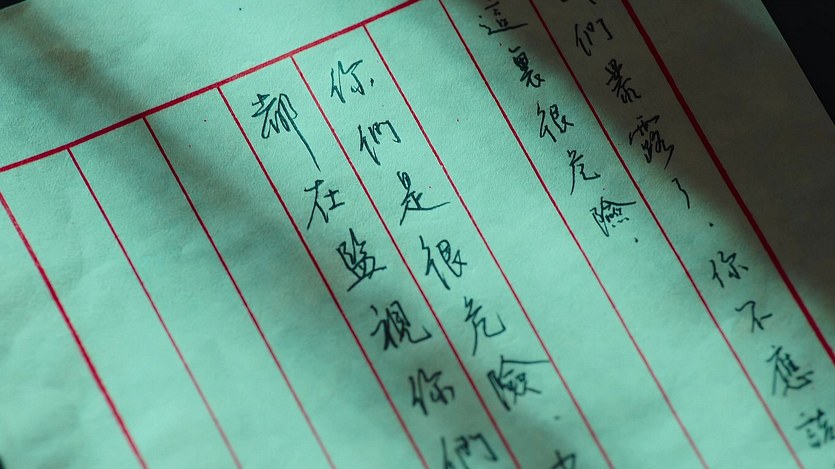 們暴露了.你不應該
這裏很危險.
你們是很危險.
都在監視你們